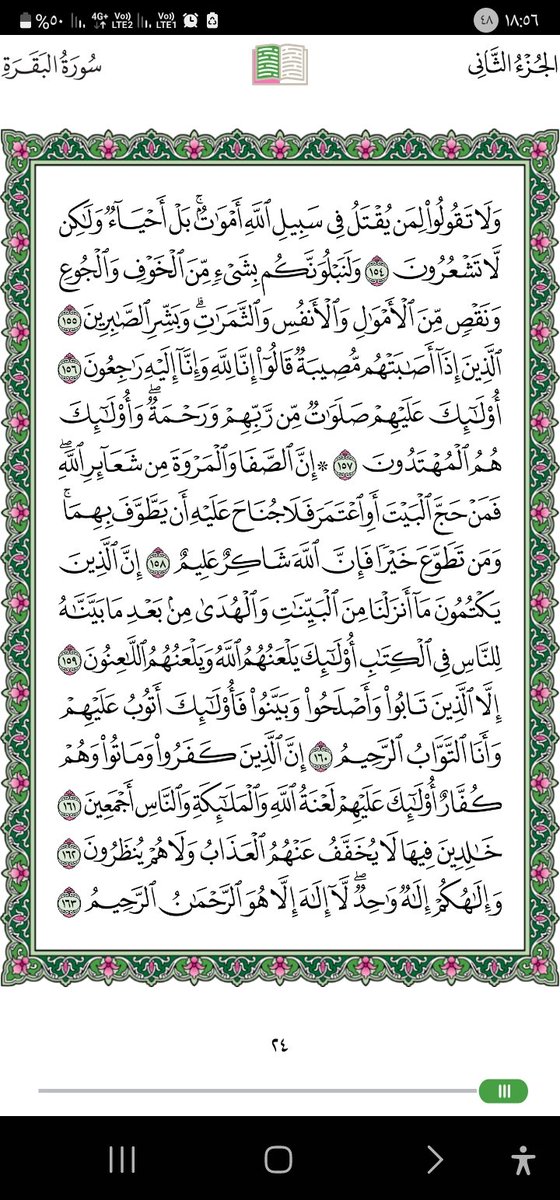 %٥٠ 4G+ Vo)) LTE2 Vo)) LTE1 ٤٨ ١٨:٥٦
الجُزْءُ الثَّانِي سُورَةُ البَقَرَةِ
وَلَا تَقُولُواْ لِمَن يُقْتَلُ فِي سَبِيلِ ٱللَّهِ أَمْوَٰتُۢۚ بَلْ أَحْيَآءٞ وَلَٰكِن
لَّا تَشْعُرُونَ ١٥٤ وَلَنَبْلُوَنَّكُم بِشَيْءٖ مِّنَ ٱلْخَوْفِ وَٱلْجُوعِ
وَنَقْصٖ مِّنَ ٱلْأَمْوَٰلِ وَٱلْأَنفُسِ وَٱلثَّمَرَٰتِۗ وَبَشِّرِ ٱلصَّٰبِرِينَ ١٥٥
ٱلَّذِينَ إِذَآ أَصَٰبَتْهُم مُّصِيبَةٞ قَالُوٓاْ إِنَّا لِلَّهِ وَإِنَّآ إِلَيْهِ رَٰجِعُونَ ١٥٦
أُوْلَٰٓئِكَ عَلَيْهِمْ صَلَوَٰتٞ مِّن رَّبِّهِمْ وَرَحْمَةٞۖ وَأُوْلَٰٓئِكَ
هُمُ ٱلْمُهْتَدُونَ ١٥٧ * إِنَّ ٱلصَّفَا وَٱلْمَرْوَةَ مِن شَعَآئِرِ ٱللَّهِۖ
فَمَنْ حَجَّ ٱلْبَيْتَ أَوِ ٱعْتَمَرَ فَلَا جُنَاحَ عَلَيْهِ أَن يَطَّوَّفَ بِهِمَاۚ
وَمَن تَطَوَّعَ خَيْرٗا فَإِنَّ ٱللَّهَ شَاكِرٌ عَلِيمٌ ١٥٨ إِنَّ ٱلَّذِينَ
يَكْتُمُونَ مَآ أَنزَلْنَا مِنَ ٱلْبَيِّنَٰتِ وَٱلْهُدَىٰ مِنۢ بَعْدِ مَا بَيَّنَّٰهُ
لِلنَّاسِ فِي ٱلْكِتَٰبِ أُوْلَٰٓئِكَ يَلْعَنُهُمُ ٱللَّهُ وَيَلْعَنُهُمُ ٱللَّٰعِنُونَ ١٥٩
إِلَّا ٱلَّذِينَ تَابُواْ وَأَصْلَحُواْ وَبَيَّنُواْ فَأُوْلَٰٓئِكَ أَتُوبُ عَلَيْهِمْ
وَأَنَا ٱلتَّوَّابُ ٱلرَّحِيمُ ١٦٠ إِنَّ ٱلَّذِينَ كَفَرُواْ وَمَاتُواْ وَهُمْ
كُفَّارٌ أُوْلَٰٓئِكَ عَلَيْهِمْ لَعْنَةُ ٱللَّهِ وَٱلْمَلَٰٓئِكَةِ وَٱلنَّاسِ أَجْمَعِينَ ١٦١
خَٰلِدِينَ فِيهَا لَا يُخَفَّفُ عَنْهُمُ ٱلْعَذَابُ وَلَا هُمْ يُنظَرُونَ ١٦٢
وَإِلَٰهُكُمْ إِلَٰهٞ وَٰحِدٞۖ لَّآ إِلَٰهَ إِلَّا هُوَ ٱلرَّحْمَٰنُ ٱلرَّحِيمُ ١٦٣
٢٤